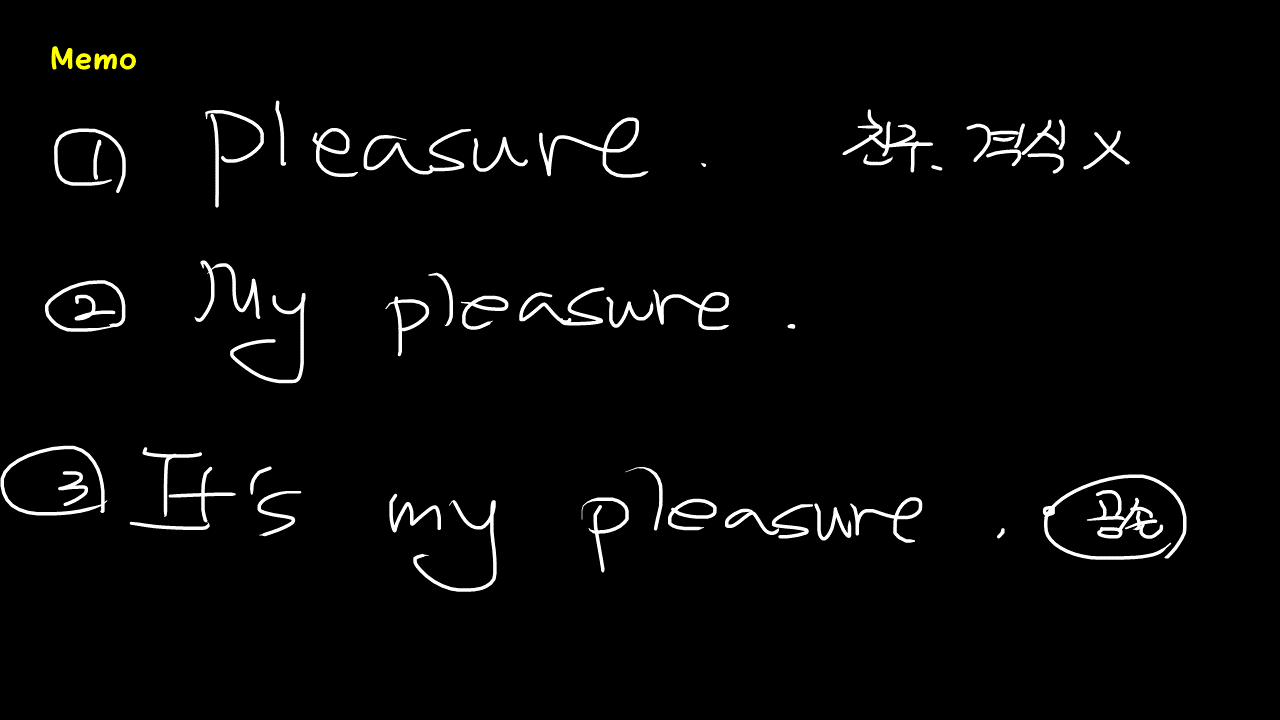 Memo
① pleasure. 친구. 격식 X
② My pleasure.
③ It's my pleasure. 공손